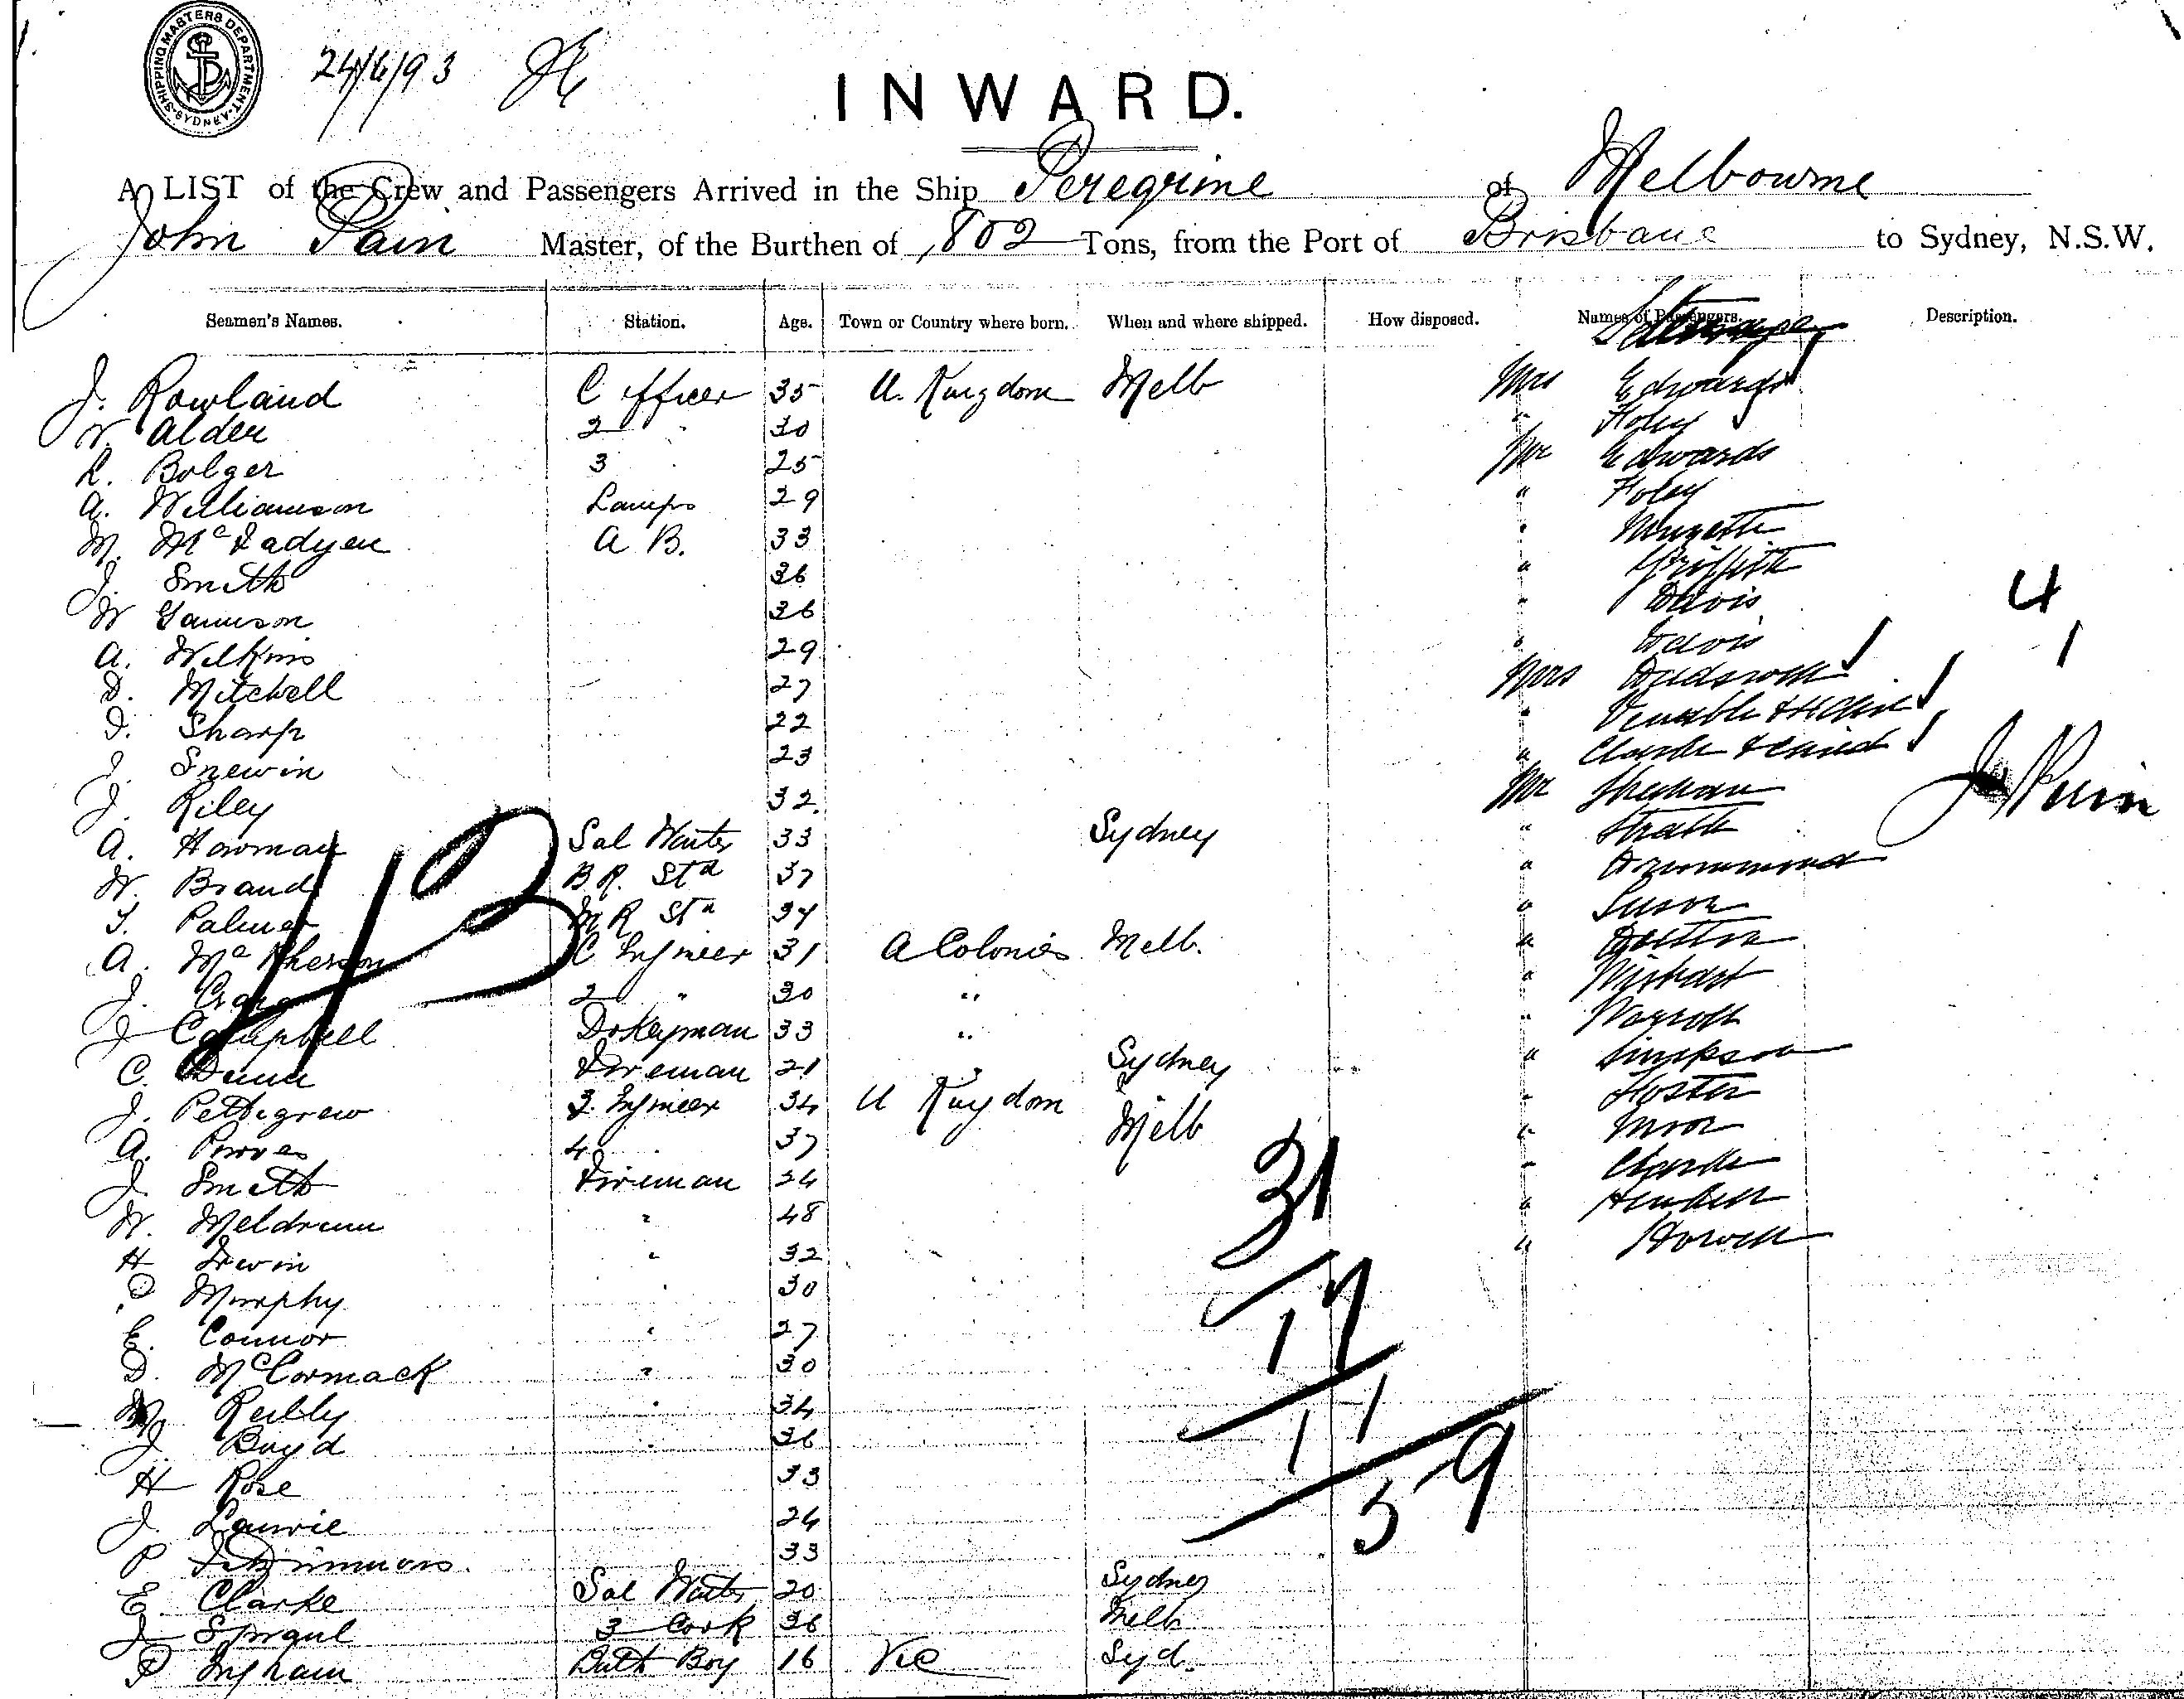 SHIPPING MASTERS DEPARTMENT SYDNEY
24/6/93
INWARD.
A LIST of the Crew and Passengers Arrived in the Ship Peregrine of Melbourne
John Pain Master, of the Burthen of 802 Tons, from the Port of Brisbane to Sydney, N.S.W.
Seamen's Names. Station. Age. Town or Country where born. When and where shipped. How disposed. Names of Passengers. Description.
J. Rowland C Officer 35 U. Kingdom Melb Mrs Edwards
W. Alder 2 " 30 " Foley
R. Bolger 3 25 Mr Edwards
A. Williamson Lamps 29 " Foley
M. McFadyen A B. 33 "
J. Smith 36 " Griffith
W 36 " Davis 4
A. Wilkins 29 " Davis 1
D. Mitchell 27 Mrs
D. Sharp 22 " Venable &
J. Snewin 23 " Clarke & Child
J. Riley 32 Mr J Pain
A. Howman Sal Waiter 33 Sydney "
W. Brand B R. Std 37 " Drummond
T. Palmer M R Std 34 "
A. McPherson C Engineer 31 A Colonies Melb. "
J. Craig 2 " 30 " "
J Campbell Dokeyman 33 " "
C. Dunn Fireman 21 " Sydney " Simpson
J. Pettigrew 3. Engineer 34 U Kingdom Melb " Foster
A. Purves 4 37 " Moor
J. Smith Fireman 24 " Clarke
W. Meldrum " 48 "
H Irwin " 32 " Howell
P Murphy 30
E. Connor " 27
D. McCormack " 30
M. Reilly " 34
J. Boyd " 36
H Rose 33
J. Lawrie 24
P Fitzsimmons 33
E. Clarke Sal Waiter 20 Sydney
J Sproul 3 Cook 36 Melb
P Ingham Bath Boy 16 Vic Syd.
31
17
11
59